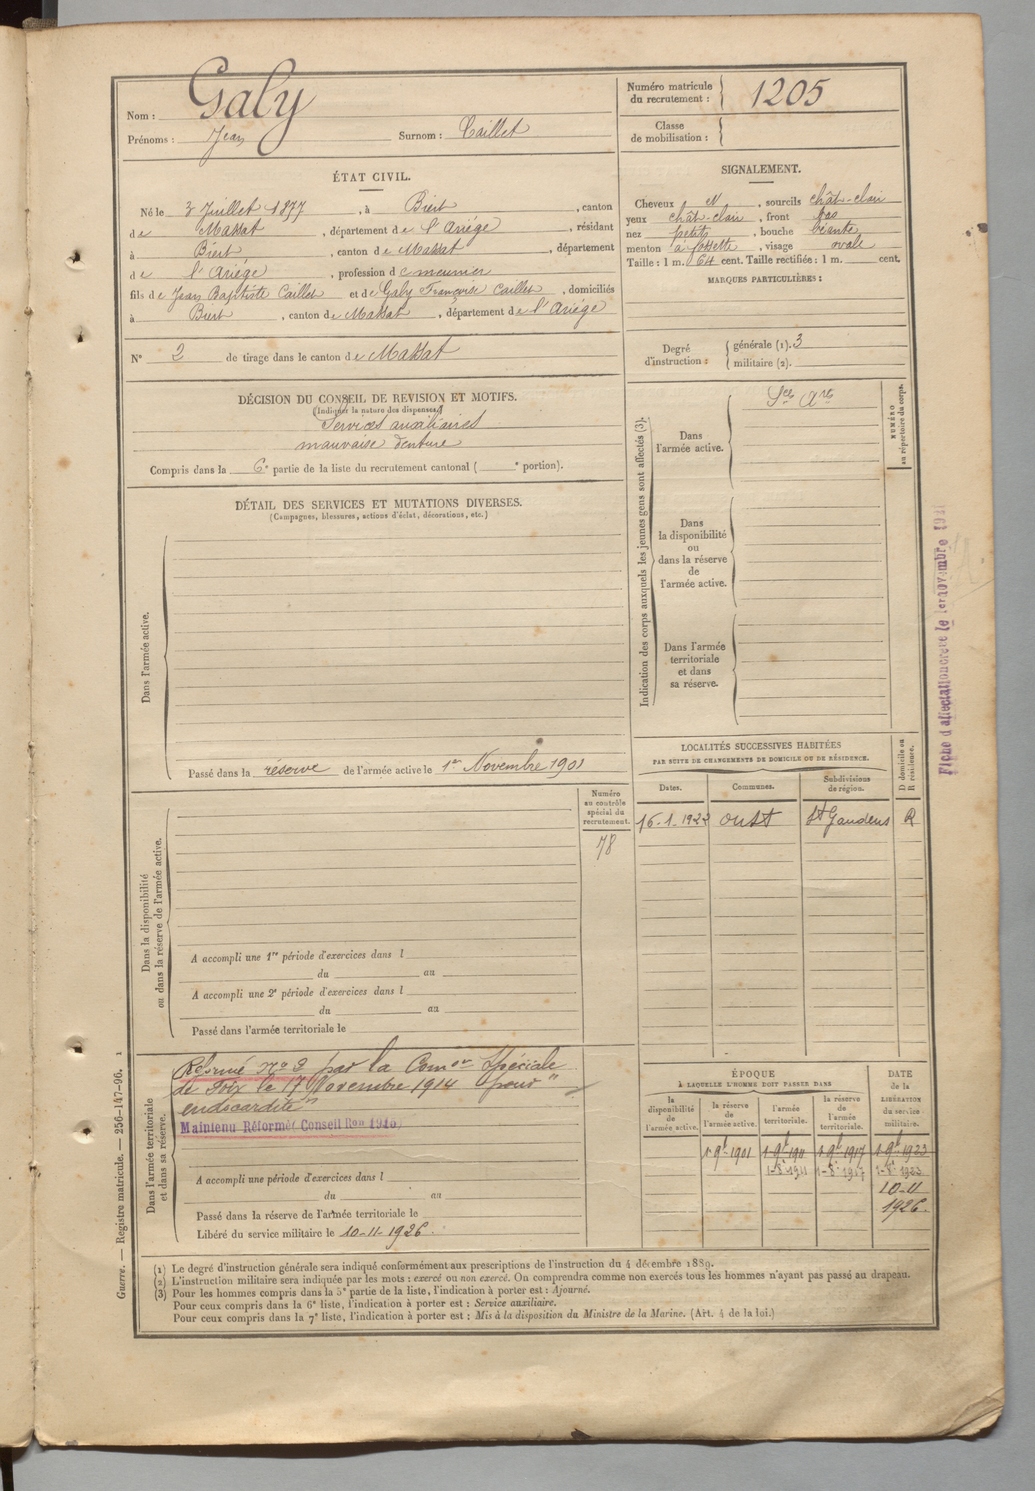 Nom : Galy
Prénoms : Jean Surnom : Caillet
Numéro matricule du recrutement : 1205
Classe de mobilisation :
ÉTAT CIVIL.
Né le 3 Juillet 1877, à Biert, canton
de Massat, département de l'Ariége, résidant
à Biert, canton de Massat, département
de l'Ariége, profession de meunier
fils de Jean Baptiste Caillet et de Galy Françoise Caillet, domiciliés
à Biert, canton de Massat, département de l'Ariége
N° 2 de tirage dans le canton de Massat
SIGNALEMENT.
Cheveux N, sourcils chât-clair
yeux chât-clair, front bas
nez petits, bouche béante
menton à fossette, visage ovale
Taille : 1 m. 64 cent. Taille rectifiée : 1 m. cent.
MARQUES PARTICULIÈRES :
Degré d'instruction : générale (1). 3
militaire (2).
DÉCISION DU CONSEIL DE REVISION ET MOTIFS.
(Indiquer la nature des dispenses)
Services auxiliaires
mauvaise denture
Compris dans la 6e partie de la liste du recrutement cantonal ( e portion).
DÉTAIL DES SERVICES ET MUTATIONS DIVERSES.
(Campagnes, blessures, actions d'éclat, décorations, etc.)
Dans l'armée active.
Passé dans la réserve de l'armée active le 1er Novembre 1901
Indication des corps auxquels les jeunes gens sont affectés (3).
Dans l'armée active.
NUMÉRO au répertoire du corps.
Dans la disponibilité ou dans la réserve de l'armée active.
Dans l'armée territoriale et dans sa réserve.
Fiche d'affectation créée le 1er novembre
LOCALITÉS SUCCESSIVES HABITÉES
PAR SUITE DE CHANGEMENTS DE DOMICILE OU DE RÉSIDENCE.
D domicile ou R résidence.
Dates. Communes. Subdivisions de région.
16-1-1922 Oust St Gaudens R
Dans la disponibilité ou dans la réserve de l'armée active.
Numéro au contrôle spécial du recrutement.
78
A accompli une 1re période d'exercices dans l
du au
A accompli une 2e période d'exercices dans l
du au
Passé dans l'armée territoriale le
Dans l'armée territoriale et dans sa réserve.
Réformé No 2 par la Comon Spéciale
de Foix le 17 Novembre 1914 pour "
endocardite "
Maintenu Réformé (Conseil Ron
A accompli une période d'exercices dans l
du au
Passé dans la réserve de l'armée territoriale le
Libéré du service militaire le 10-11-1926.
ÉPOQUE
À LAQUELLE L'HOMME DOIT PASSER DANS
la disponibilité de l'armée active. la réserve de l'armée active. l'armée territoriale. la réserve de l'armée territoriale.
DATE de la LIBÉRATION du service militaire.
1 9bre 1901 1 9bre 1911 1 9bre 1917 1 9bre 1923
10-11
1926.
(1) Le degré d'instruction générale sera indiqué conformément aux prescriptions de l'instruction du 4 décembre 1889.
(2) L'instruction militaire sera indiquée par les mots : exercé ou non exercé. On comprendra comme non exercés tous les hommes n'ayant pas passé au drapeau.
(3) Pour les hommes compris dans la 5e partie de la liste, l'indication à porter est : Ajourné.
Pour ceux compris dans la 6e liste, l'indication à porter est : Service auxiliaire.
Pour ceux compris dans la 7e liste, l'indication à porter est : Mis à la disposition du Ministre de la Marine. (Art. 4 de la loi.)
Guerre. — Registre matricule. — 256-147-96. 1